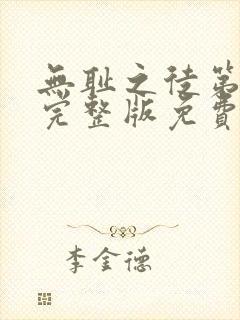 無耻之徒第
完整版免費
李金德